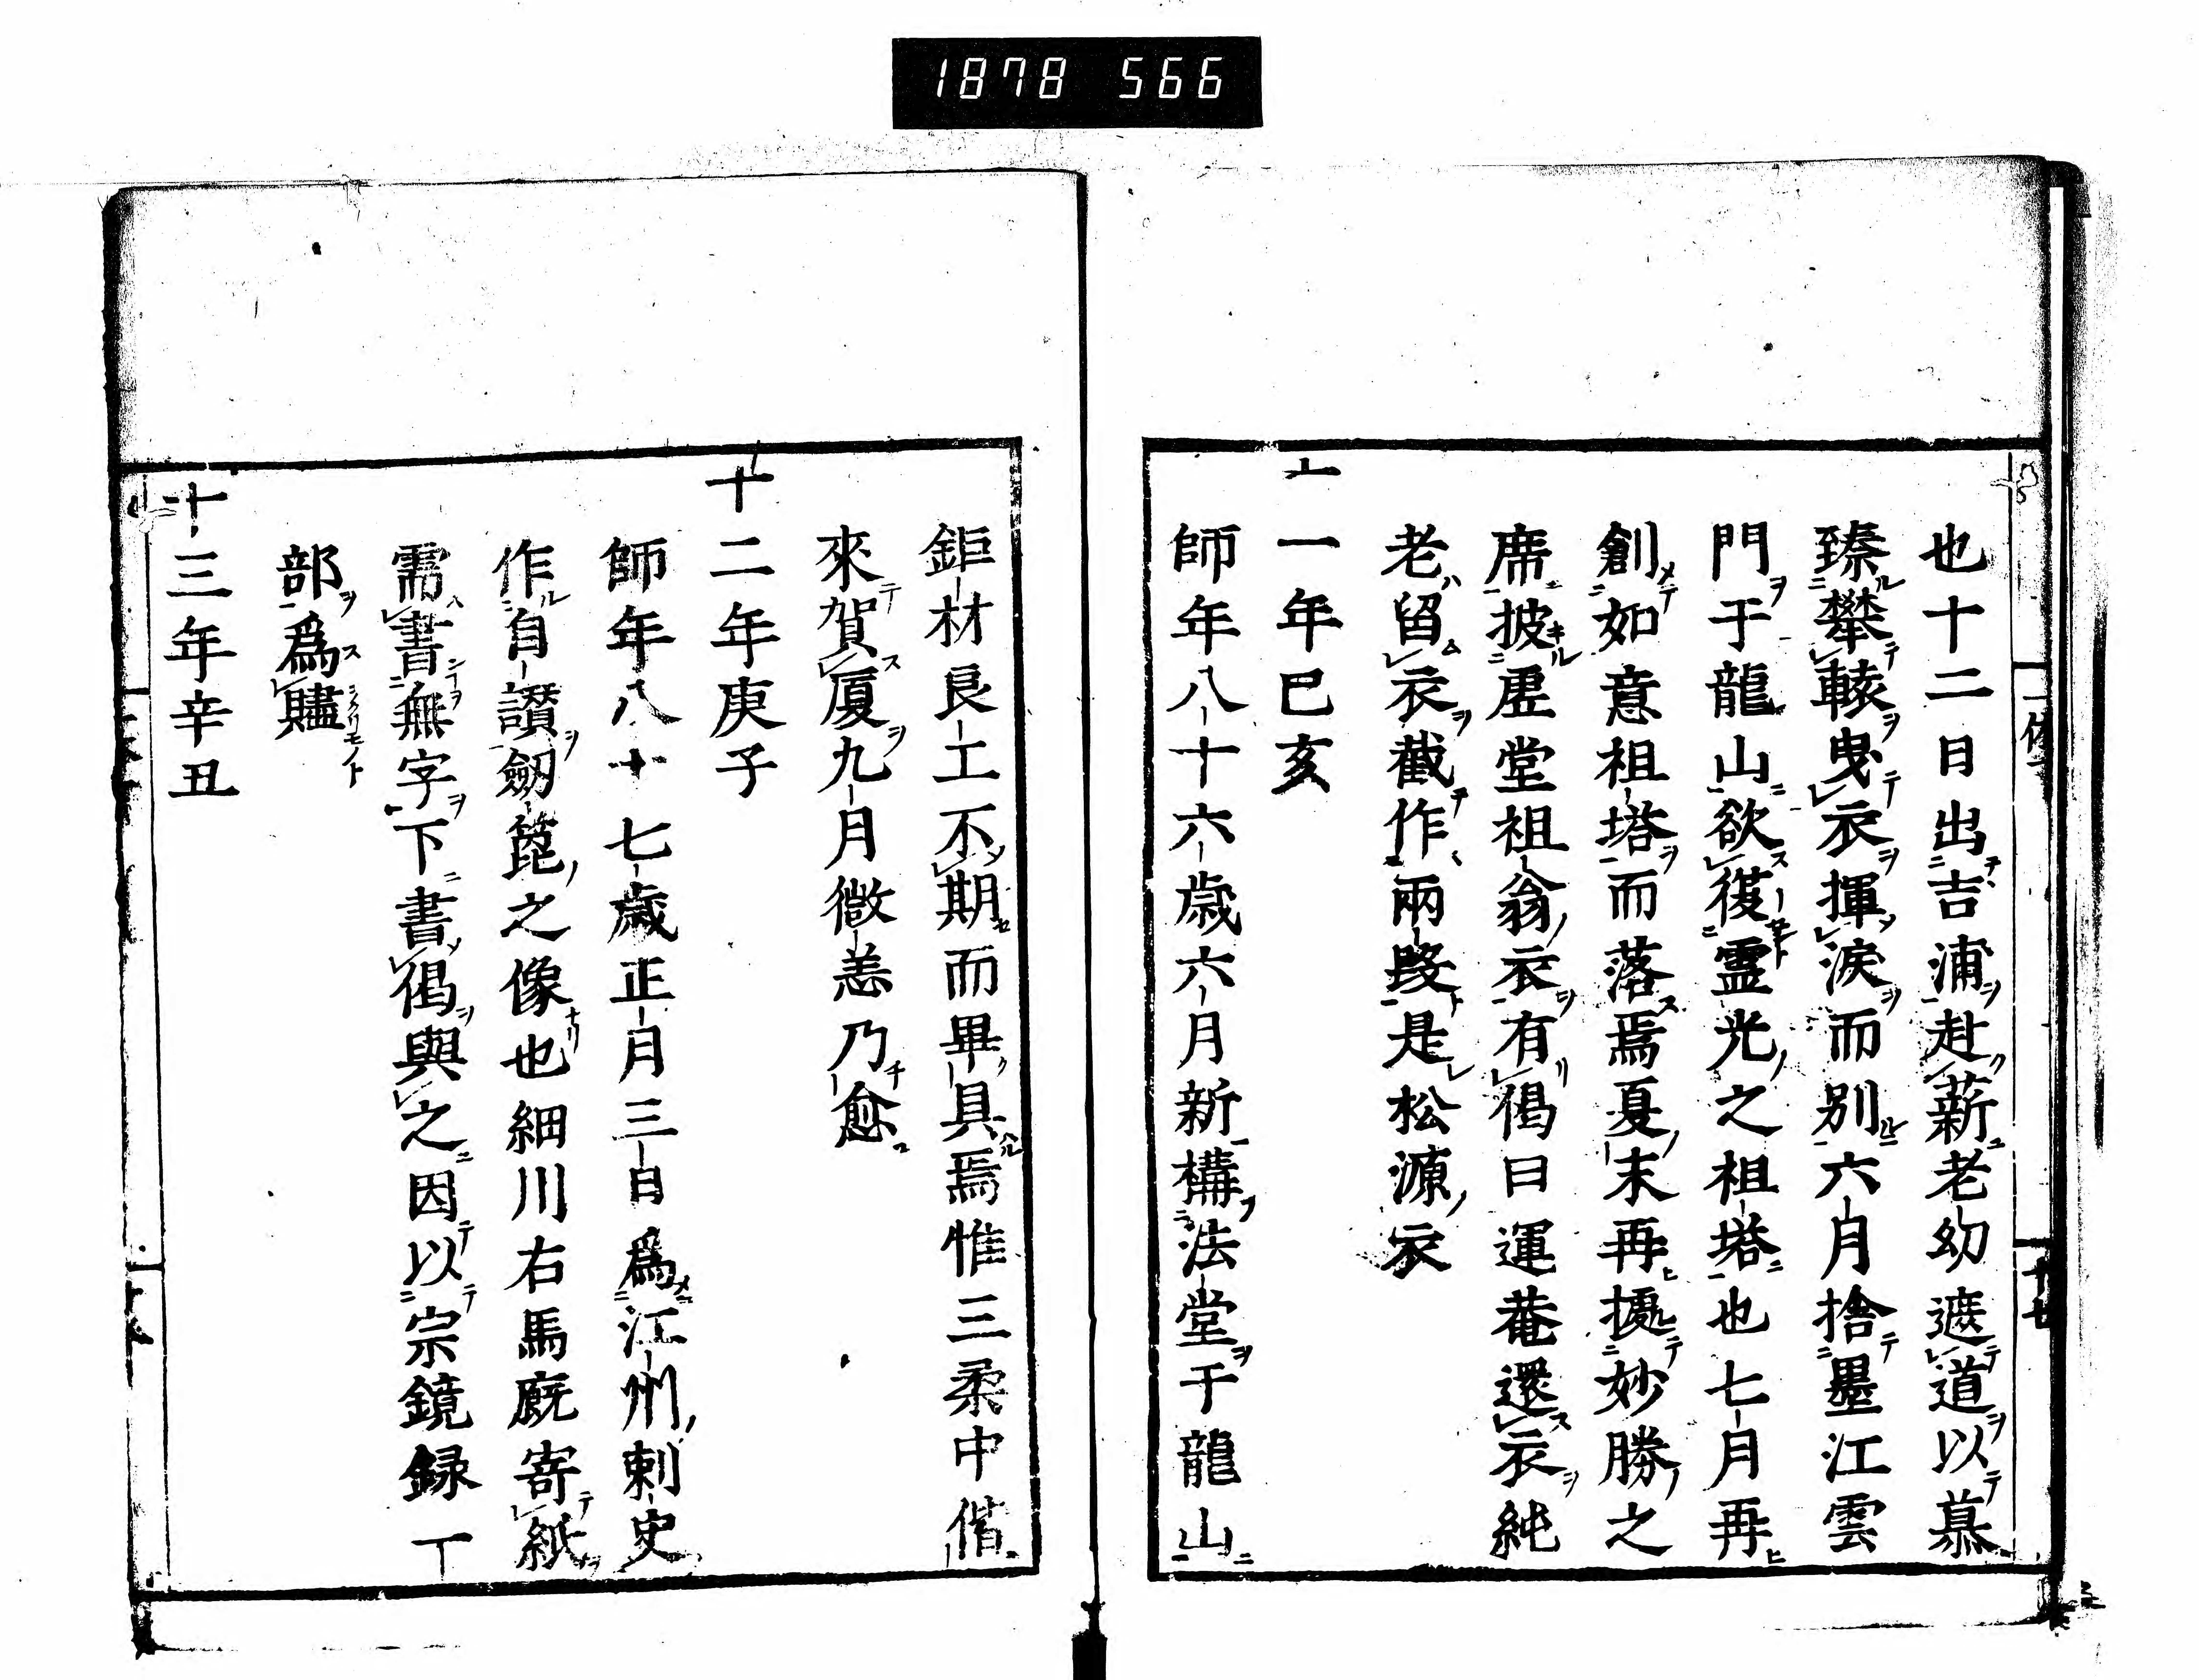 1878 566
也十二日出吉浦赴薪老幼遮道以慕
臻攀轅曳衣揮淚而别六月捨墨江雲
門于龍山欲復霊光之祖塔也七月再
創如意祖塔而落焉夏末再據妙勝之
席披虚堂祖翁衣有偈曰運菴還衣純
老留衣截作兩段是松源衣
十一年己亥
師年八十六歳六月新構法堂于龍山
鉅材良工不期而畢具焉惟三柔中偕
來賀厦九月微恙乃愈
十二年庚子
師年八十七歳正月三日爲江州刺史
作自讃劒箆之像也細川右馬廐寄紙
需書無字下書偈與之因以宗鏡録一
部爲贐
十三年辛丑